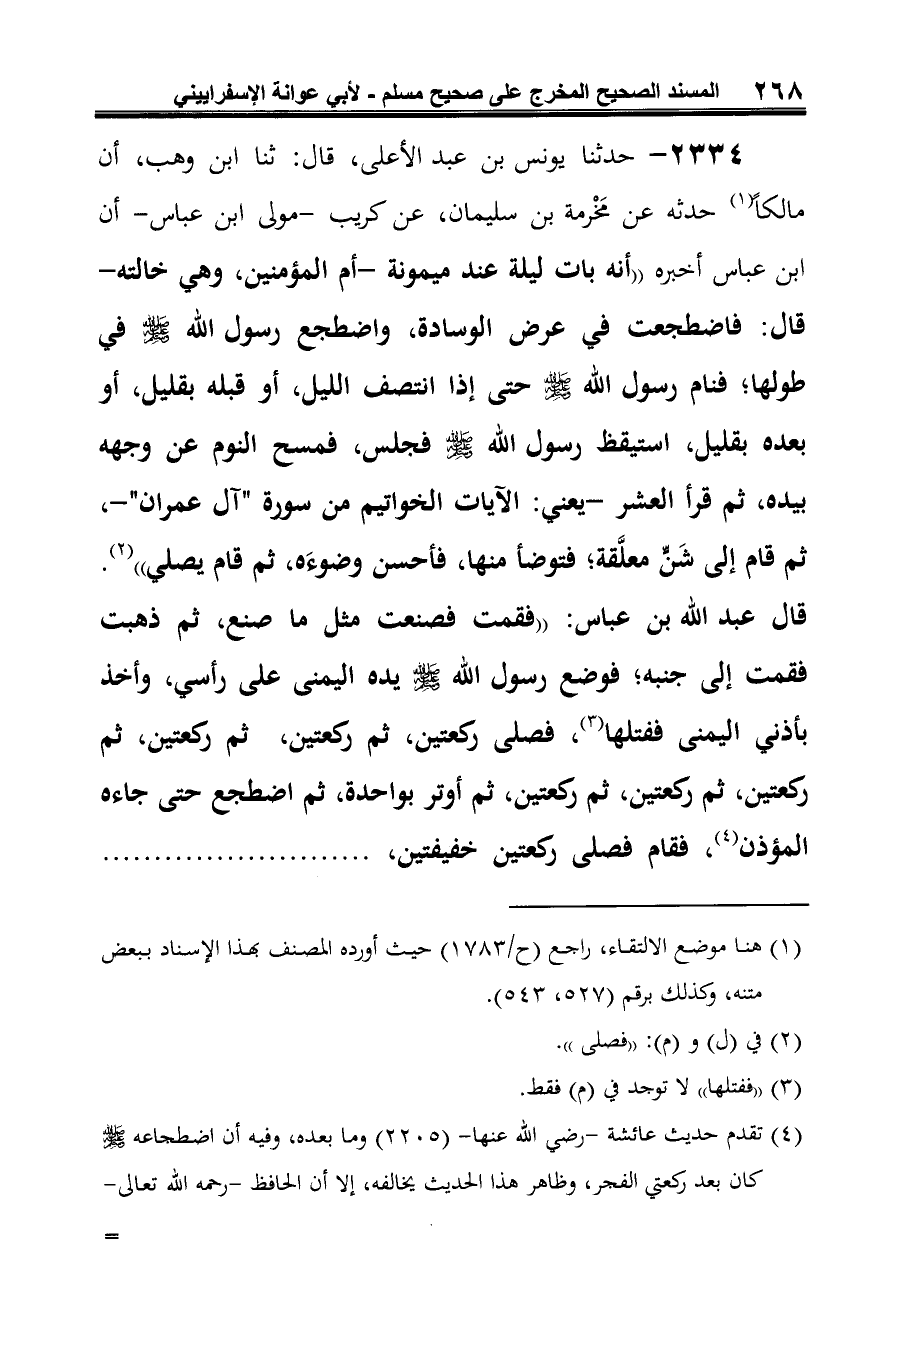 ٢٦٨ المسند الصحيح المخرج على صحيح مسلم - لأبي عوانة الإسفراييني
٢٣٣٤- حدثنا يونس بن عبد الأعلى، قال: ثنا ابن وهب، أن
مالكاً(١) حدثه عن مَخْرمة بن سليمان، عن كريب -مولى ابن عباس- أن
ابن عباس أخبره ((أنه بات ليلة عند ميمونة -أم المؤمنين، وهي خالته-
قال: فاضطجعت في عرض الوسادة، واضطجع رسول الله ﷺ في
طولها؛ فنام رسول الله ﷺ حتى إذا انتصف الليل، أو قبله بقليل، أو
بعده بقليل، استيقظ رسول الله ﷺ فجلس، فمسح النوم عن وجهه
بيده، ثم قرأ العشر -يعني: الآيات الخواتيم من سورة "آل عمران"-،
ثم قام إلى شَنٍّ معلَّقة؛ فتوضأ منها، فأحسن وضوءَه، ثم قام يصلي))(٢).
قال عبد الله بن عباس: ((فقمت فصنعت مثل ما صنع، ثم ذهبت
فقمت إلى جنبه؛ فوضع رسول الله ﷺ يده اليمنى على رأسي، وأخذ
بأذني اليمنى ففتلها(٣)، فصلى ركعتين، ثم ركعتين، ثم ركعتين، ثم
ركعتين، ثم ركعتين، ثم ركعتين، ثم أوتر بواحدة، ثم اضطجع حتى جاءه
المؤذن(٤)، فقام فصلى ركعتين خفيفتين، ..........................
(١) هنا موضع الالتقاء، راجع (ح/١٧٨٣) حيث أورده المصنف بهذا الإسناد ببعض
متنه، وكذلك برقم (٥٢٧، ٥٤٣).
(٢) في (ل) و (م): ((فصلى )).
(٣) ((ففتلها)) لا توجد في (م) فقط.
(٤) تقدم حديث عائشة -رضي الله عنها- (٢٢٠٥) وما بعده، وفيه أن اضطجاعه ﷺ
كان بعد ركعتي الفجر، وظاهر هذا الحديث يخالفه، إلا أن الحافظ -رحمه الله تعالى-
=